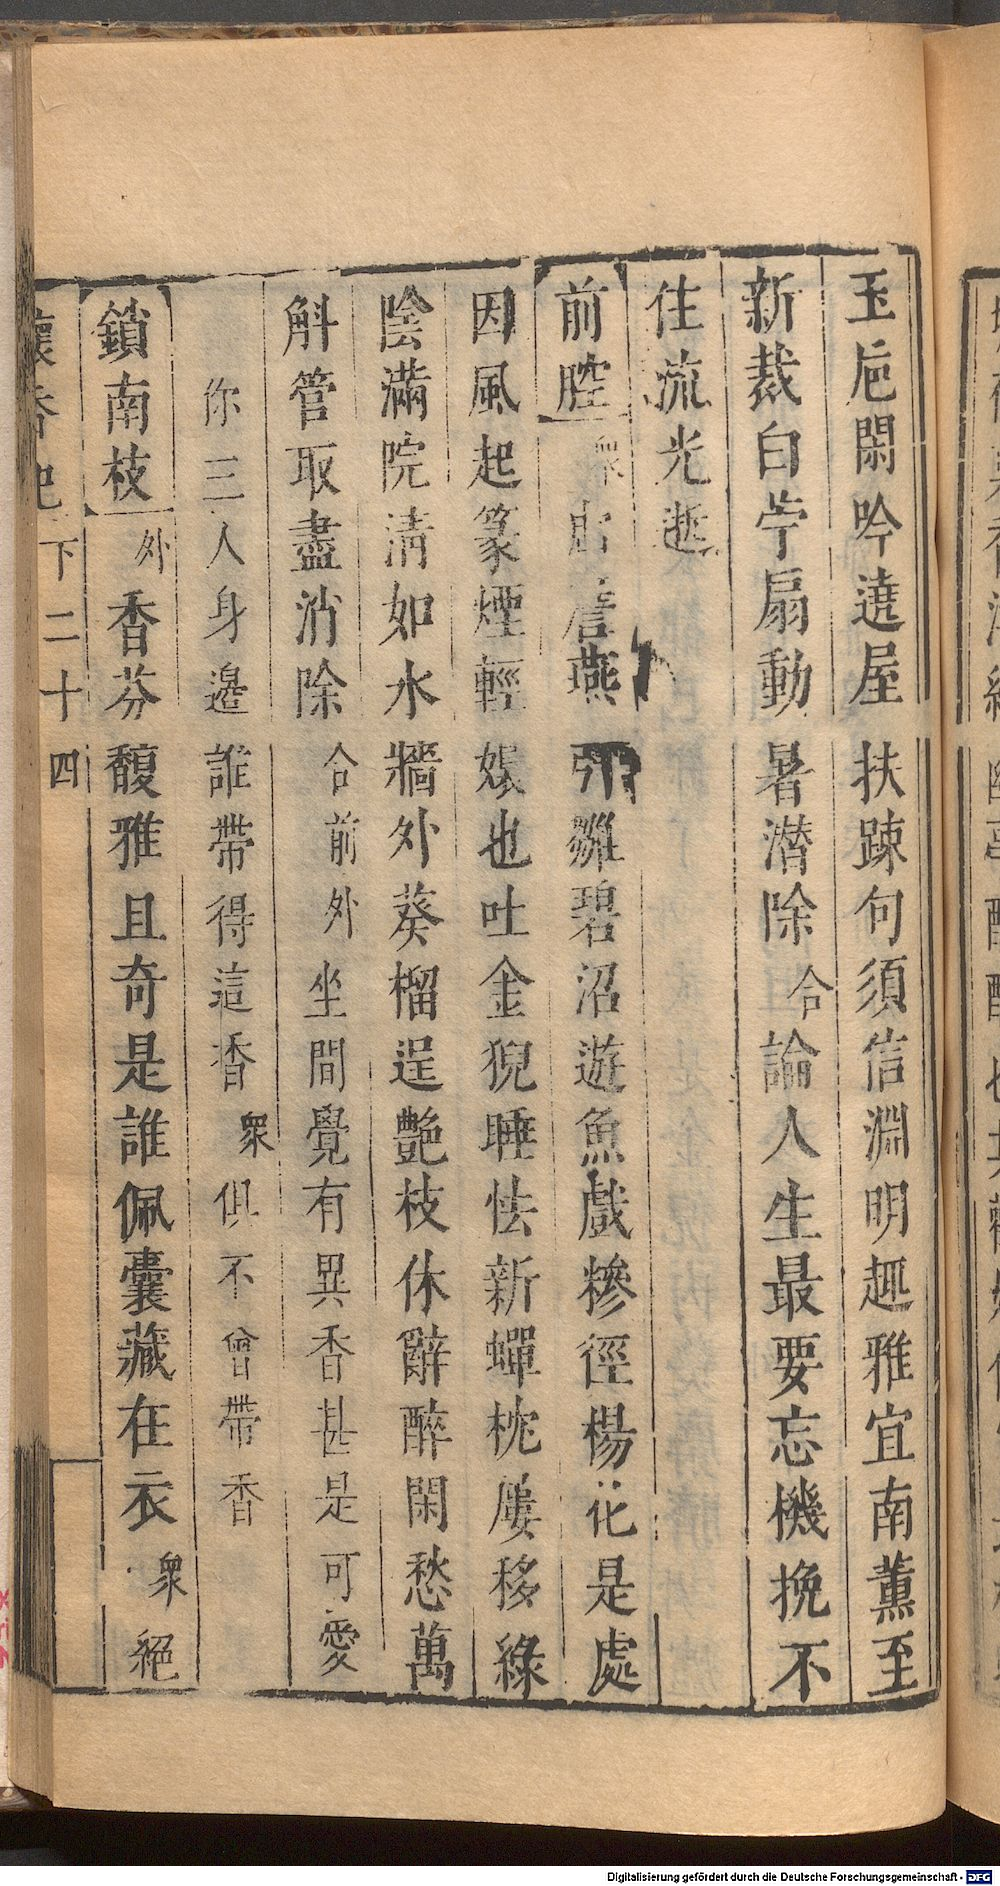 玉巵閑吟遶屋扶踈句須信淵明趣雅宜南薰至
新裁白苧扇動暑潜除合論人生最要忘機挽不
住流光逝
前腔衆出詹燕引雛碧沼遊魚戲糝徑楊花是處
因風起篆煙輕娘也吐金猊睡怯新蟬枕屢移綠
陰滿院清如水牆外葵榴逞艷枝休辭醉閑愁萬
斛管取盡消除合前外坐間覺有異香甚是可愛
你三人身邊誰帶得這香衆俱不曾帶香
鎖南枝外香芬馥雅且奇是誰佩囊藏在衣衆絕
懷香記下二十四
Digitalisierung gefördert durch die Deutsche Forschungsgemeinschaft - DFG